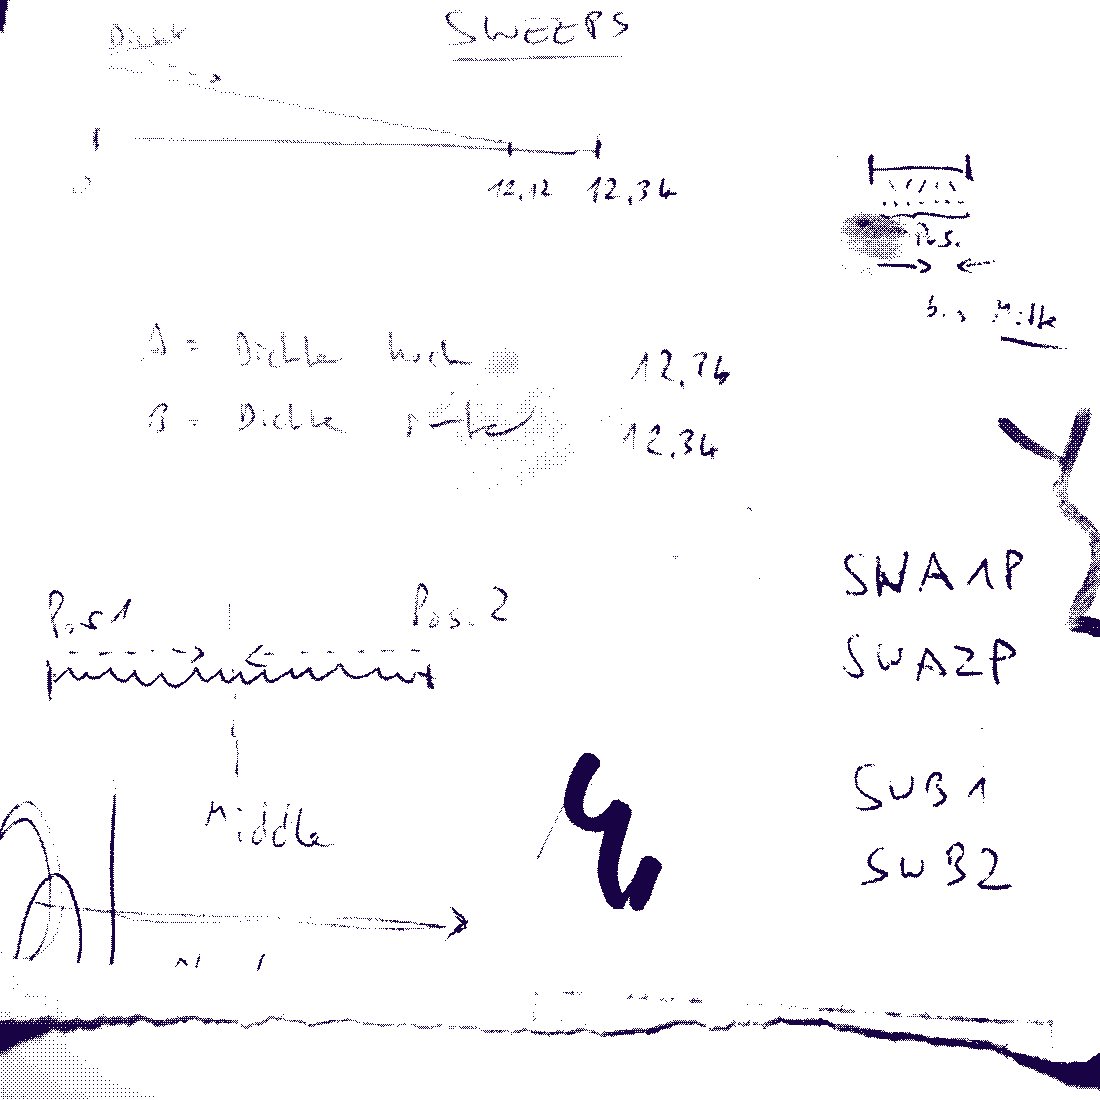 SWEEPS
12.12 12.34
Pos.
bis Mitte
A = Dichte hoch 12.74
B = Dichte 12.34
Pos 1 Pos. 2
Middle
SWA1P
SWA2P
SWB1
SWB2